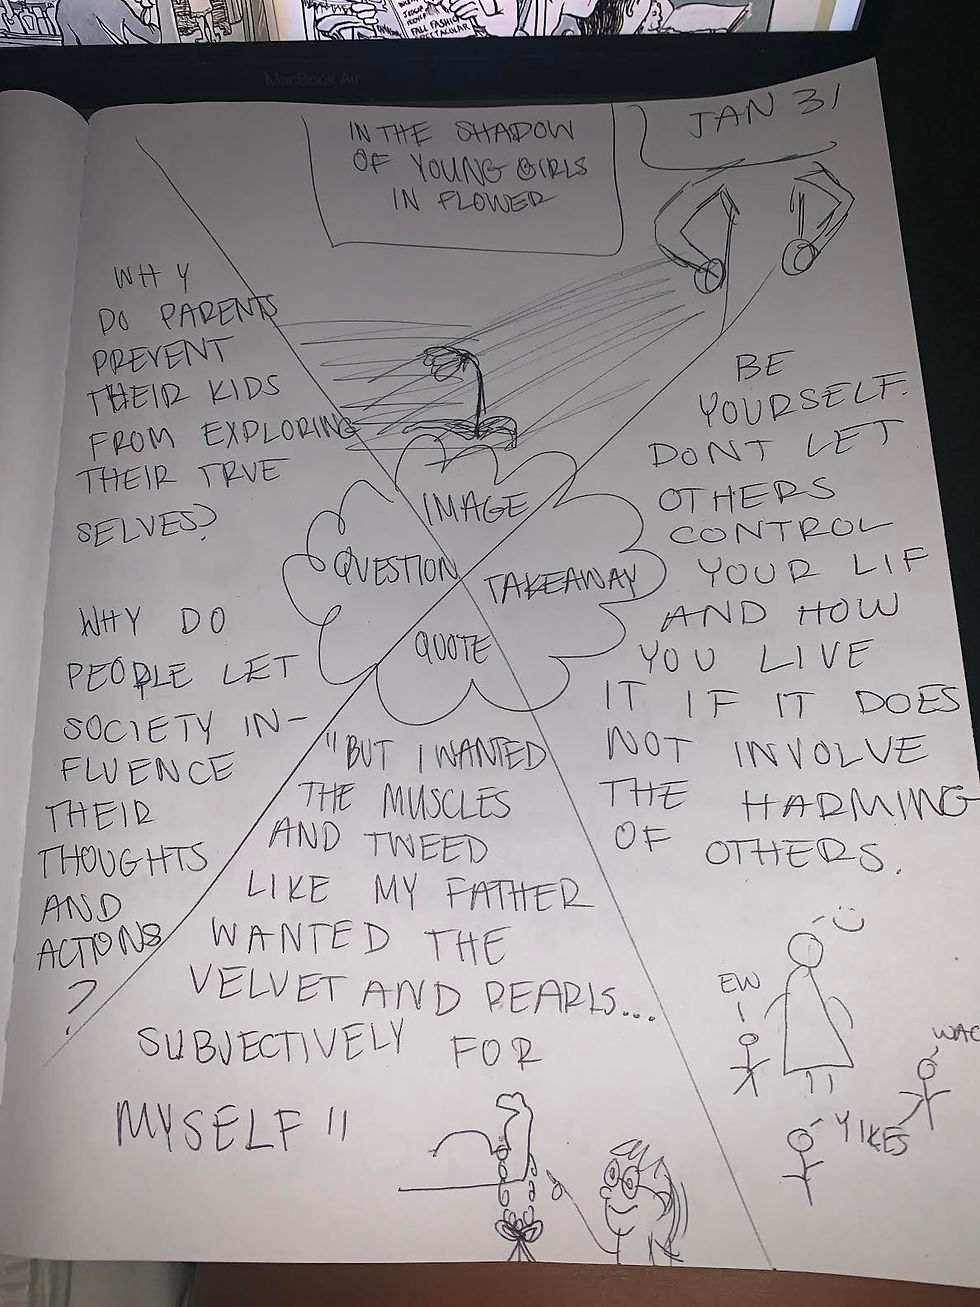 FALL FASHION
MacBook Air
IN THE SHADOW
OF YOUNG GIRLS
IN FLOWER
JAN 31
WHY
DO PARENTS
PREVENT
THEIR KIDS
FROM EXPLORING
THEIR TRUE
SELVES?
WHY DO
PEOPLE LET
SOCIETY IN-
FLUENCE
THEIR
THOUGHTS
AND
ACTIONS
?
IMAGE
QUESTION
TAKEAWAY
QUOTE
BE
YOURSELF.
DONT LET
OTHERS
CONTROL
YOUR LIF
AND HOW
YOU LIVE
IT IF IT DOES
NOT INVOLVE
THE HARMING
OF OTHERS.
"BUT I WANTED
THE MUSCLES
AND TWEED
LIKE MY FATHER
WANTED THE
VELVET AND PEARLS...
SUBJECTIVELY FOR
MYSELF"
EW
WAC
YIKES